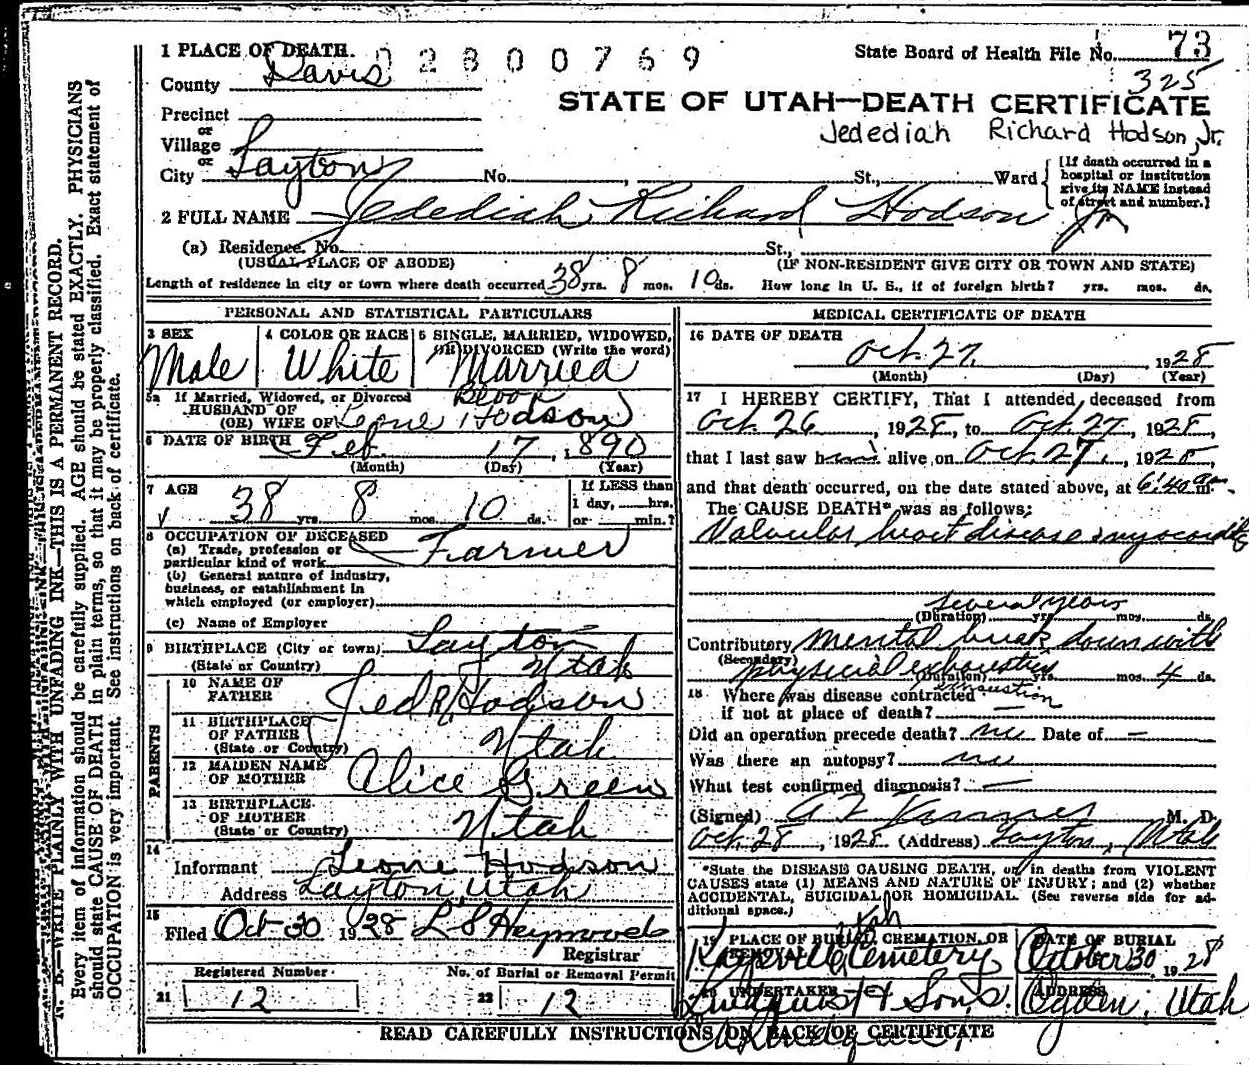 1 PLACE OF DEATH. 02800769 State Board of Health File No. 73
County Davis 325
STATE OF UTAH—DEATH CERTIFICATE
Precinct
or Jedediah Richard Hodson, Jr.
Village
or
City Layton No. , St., Ward
[If death occurred in a
hospital or institution
give its NAME instead
of street and number.]
2 FULL NAME Jedediah Richard Hodson Jr
(a) Residence. No. St.,
(USUAL PLACE OF ABODE) (IF NON-RESIDENT GIVE CITY OR TOWN AND STATE)
Length of residence in city or town where death occurred 38 yrs. 8 mos. 10 ds. How long in U. S., if of foreign birth? yrs. mos. ds.
PERSONAL AND STATISTICAL PARTICULARS
3 SEX 4 COLOR OR RACE 5 SINGLE, MARRIED, WIDOWED,
OR DIVORCED (Write the word)
Male White Married
5a If Married, Widowed, or Divorced
HUSBAND OF
(OR) WIFE OF Leone Hodson
6 DATE OF BIRTH Feb. 17, 1890
(Month) (Day) (Year)
7 AGE If LESS than
38 yrs. 8 mos. 10 ds. 1 day, hrs.
or min.?
8 OCCUPATION OF DECEASED
(a) Trade, profession or
particular kind of work Farmer
(b) General nature of industry,
business, or establishment in
which employed (or employer)
(c) Name of Employer
9 BIRTHPLACE (City or town) Layton
(State or Country) Utah
PARENTS
10 NAME OF
FATHER Jed R Hodson
11 BIRTHPLACE
OF FATHER
(State or Country) Utah
12 MAIDEN NAME
OF MOTHER Alice Green
13 BIRTHPLACE
OF MOTHER
(State or Country) Utah
14
Informant Leone Hodson
Address Layton, Utah
15
Filed Oct-30 1928 L S Heywood
Registrar
Registered Number No. of Burial or Removal Permit
21 12 22 12
MEDICAL CERTIFICATE OF DEATH
16 DATE OF DEATH
Oct. 27, 1928
(Month) (Day) (Year)
17 I HEREBY CERTIFY, That I attended deceased from
Oct. 26, 1928, to Oct. 27, 1928,
that I last saw him alive on Oct. 27, 1928,
and that death occurred, on the date stated above, at 6:40 a m.
The CAUSE DEATH* was as follows:
Valvular heart disease & myocarditis
several years
(Duration) yrs. mos. ds.
Contributory Mental break down with
(Secondary) physical exhaustion (Duration) yrs. mos. 4 ds.
exhaustion
18 Where was disease contracted
if not at place of death? —
Did an operation precede death? no Date of —
Was there an autopsy? no
What test confirmed diagnosis? —
(Signed) M. D.
Oct. 28, 1928 (Address) Layton, Utah
*State the DISEASE CAUSING DEATH, or in deaths from VIOLENT
CAUSES state (1) MEANS AND NATURE OF INJURY; and (2) whether
ACCIDENTAL, SUICIDAL OR HOMICIDAL. (See reverse side for ad-
ditional space.)
19 PLACE OF BURIAL, CREMATION, OR DATE OF BURIAL
Kaysville Cemetery October 30 1928
UNDERTAKER ADDRESS
& Sons. Ogden, Utah
READ CAREFULLY INSTRUCTIONS ON BACK OF CERTIFICATE
N. B.—WRITE PLAINLY WITH UNFADING INK—THIS IS A PERMANENT RECORD.
Every item of information should be carefully supplied. AGE should be stated EXACTLY. PHYSICIANS
should state CAUSE OF DEATH in plain terms, so that it may be properly classified. Exact statement of
OCCUPATION is very important. See instructions on back of certificate.